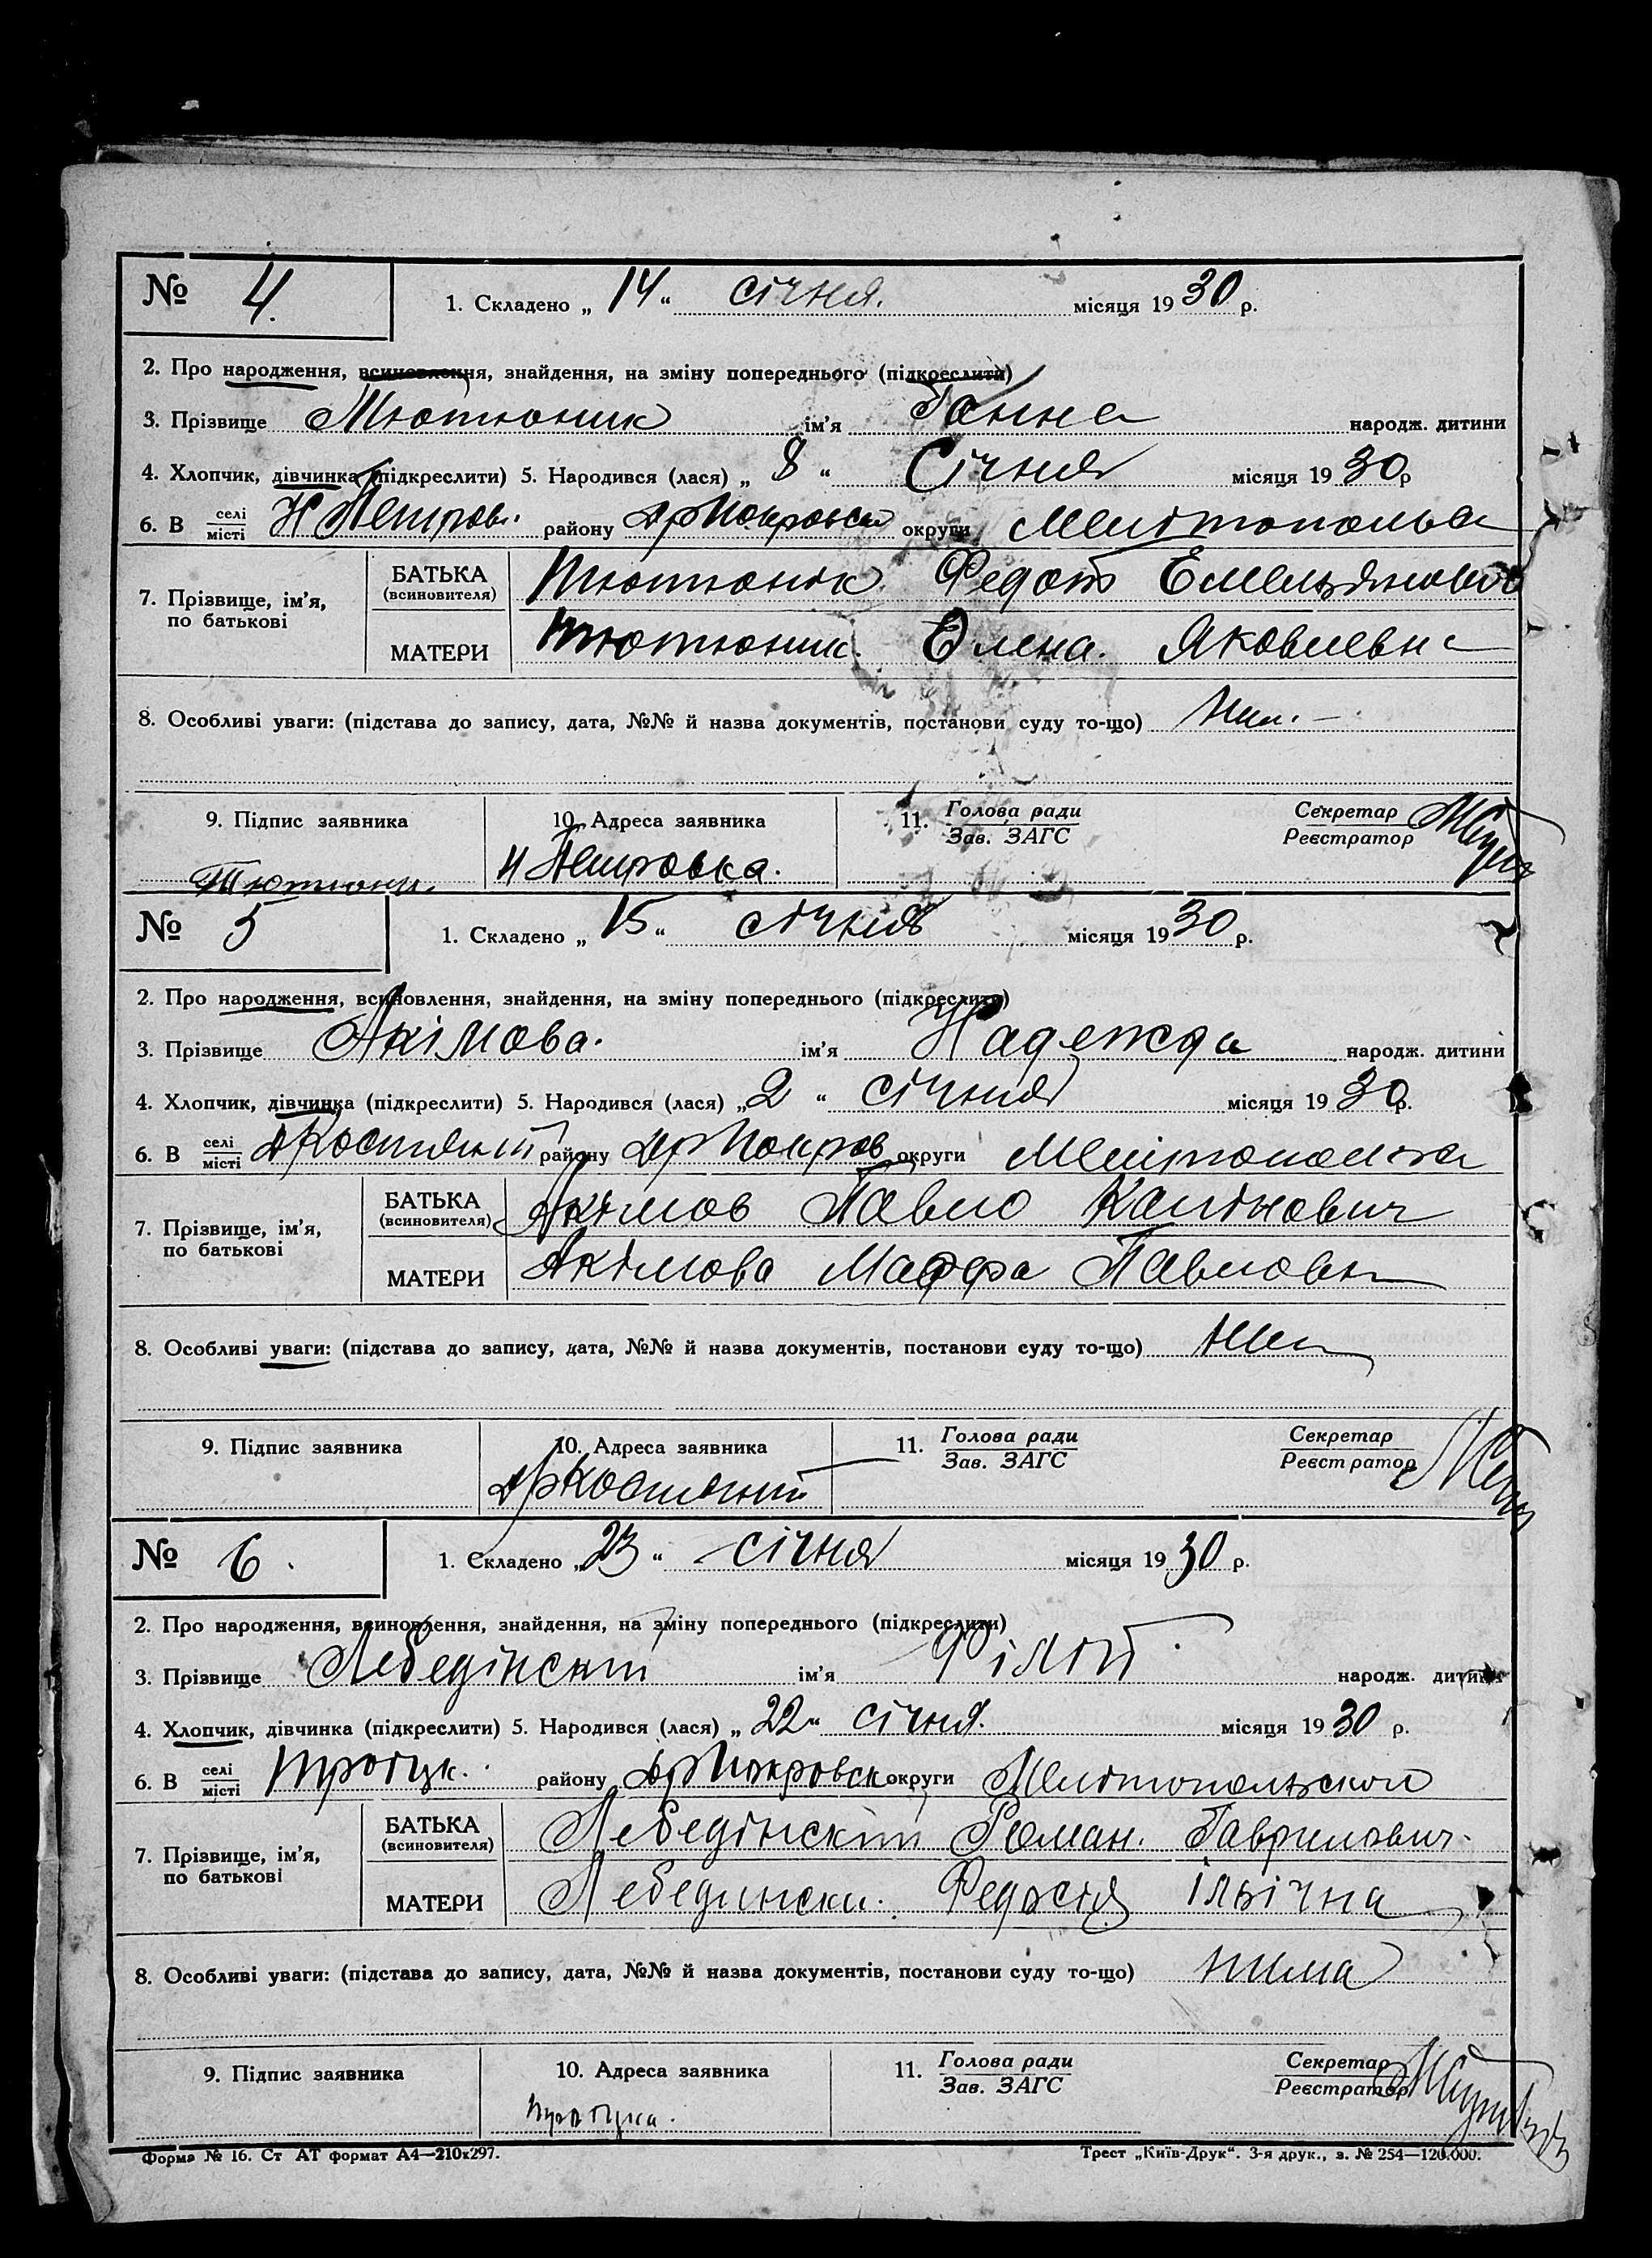 № 4. 1. Складено „ 14 “ січня. місяця 1930 р.
2. Про народження, всиновлення, знайдення, на зміну попереднього (підкреслити)
3. Прізвище Тютюник ім'я Ганна народж. дитини
4. Хлопчик, дівчинка (підкреслити) 5. Народився (лася) „ 8 “ Січня місяця 1930 р
6. В селі місті Н Петров. району округи
7. Прізвище, ім'я, по батькові БАТЬКА (всиновителя) Тютюнік Федот
МАТЕРИ Тютюник. Олена. Яковлевна
8. Особливі уваги: (підстава до запису, дата, №№ й назва документів, постанови суду то-що)
9. Підпис заявника 10. Адреса заявника 11. Голова ради Зав. ЗАГС Секретар Реєстратор
Н Петровка.
№ 5 1. Складено „ 15 “ січня місяця 1930 р.
2. Про народження, всиновлення, знайдення, на зміну попереднього (підкреслити)
3. Прізвище Акімова. ім'я Надежда народж. дитини
4. Хлопчик, дівчинка (підкреслити) 5. Народився (лася) „ 2 “ січня місяця 1930 р.
6. В селі місті району округи
7. Прізвище, ім'я, по батькові БАТЬКА (всиновителя) Акімов Павло
МАТЕРИ Акімова Павловна
8. Особливі уваги: (підстава до запису, дата, №№ й назва документів, постанови суду то-що)
9. Підпис заявника 10. Адреса заявника 11. Голова ради Зав. ЗАГС Секретар Реєстратор
№ 6. 1. Складено „ 23 “ січня місяця 1930 р.
2. Про народження, всиновлення, знайдення, на зміну попереднього (підкреслити)
3. Прізвище Лебедінскій ім'я народж. дитини
4. Хлопчик, дівчинка (підкреслити) 5. Народився (лася) „ 22 “ січня. місяця 1930 р.
6. В селі місті Троіцк. району округи Мелітопольскоі
7. Прізвище, ім'я, по батькові БАТЬКА (всиновителя) Лебедінскій Роман. Гаврилович.
МАТЕРИ Лебединска. Федосія Ільічна
8. Особливі уваги: (підстава до запису, дата, №№ й назва документів, постанови суду то-що) нима
9. Підпис заявника 10. Адреса заявника 11. Голова ради Зав. ЗАГС Секретар Реєстратор
Форма № 16. Ст АТ формат А4—210х297. Трест „Київ-Друк“. 3-я друк., з. № 254—120.000.